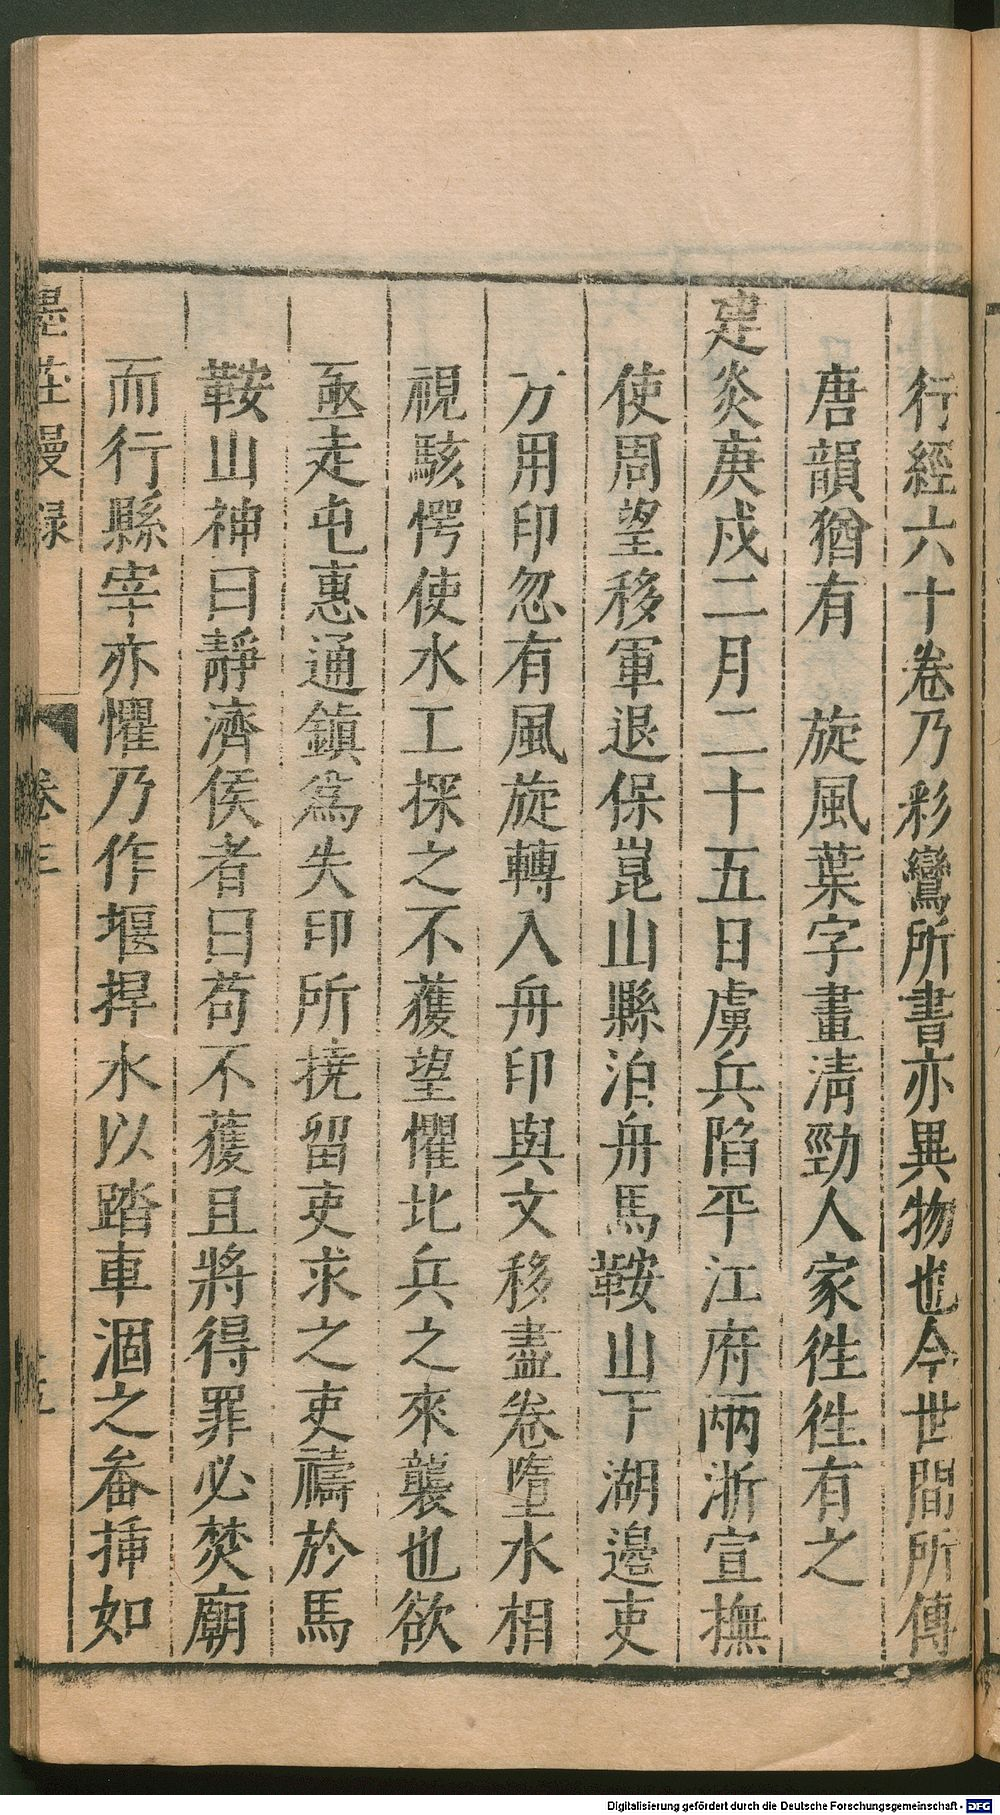 行經六十卷乃彩鸞所書亦異物也今世間所傳
唐韻猶有　旋風葉字畫清勁人家徃徃有之
建炎庚戌二月二十五日虜兵陷平江府兩浙宣撫
使周望移軍退保崑山縣泊舟馬鞍山下湖邊吏
方用印忽有風旋轉入舟印與文移盡卷墮水相
視駭愕使水工探之不獲望懼北兵之來襲也欲
亟走屯惠通鎮爲失印所撓留吏求之吏禱於馬
鞍山神曰靜濟侯者曰苟不獲且將得罪必焚廟
而行縣宰亦懼乃作堰捍水以踏車涸之畚挿如
墨莊漫錄
卷三
Digitalisierung gefördert durch die Deutsche Forschungsgemeinschaft - DFG